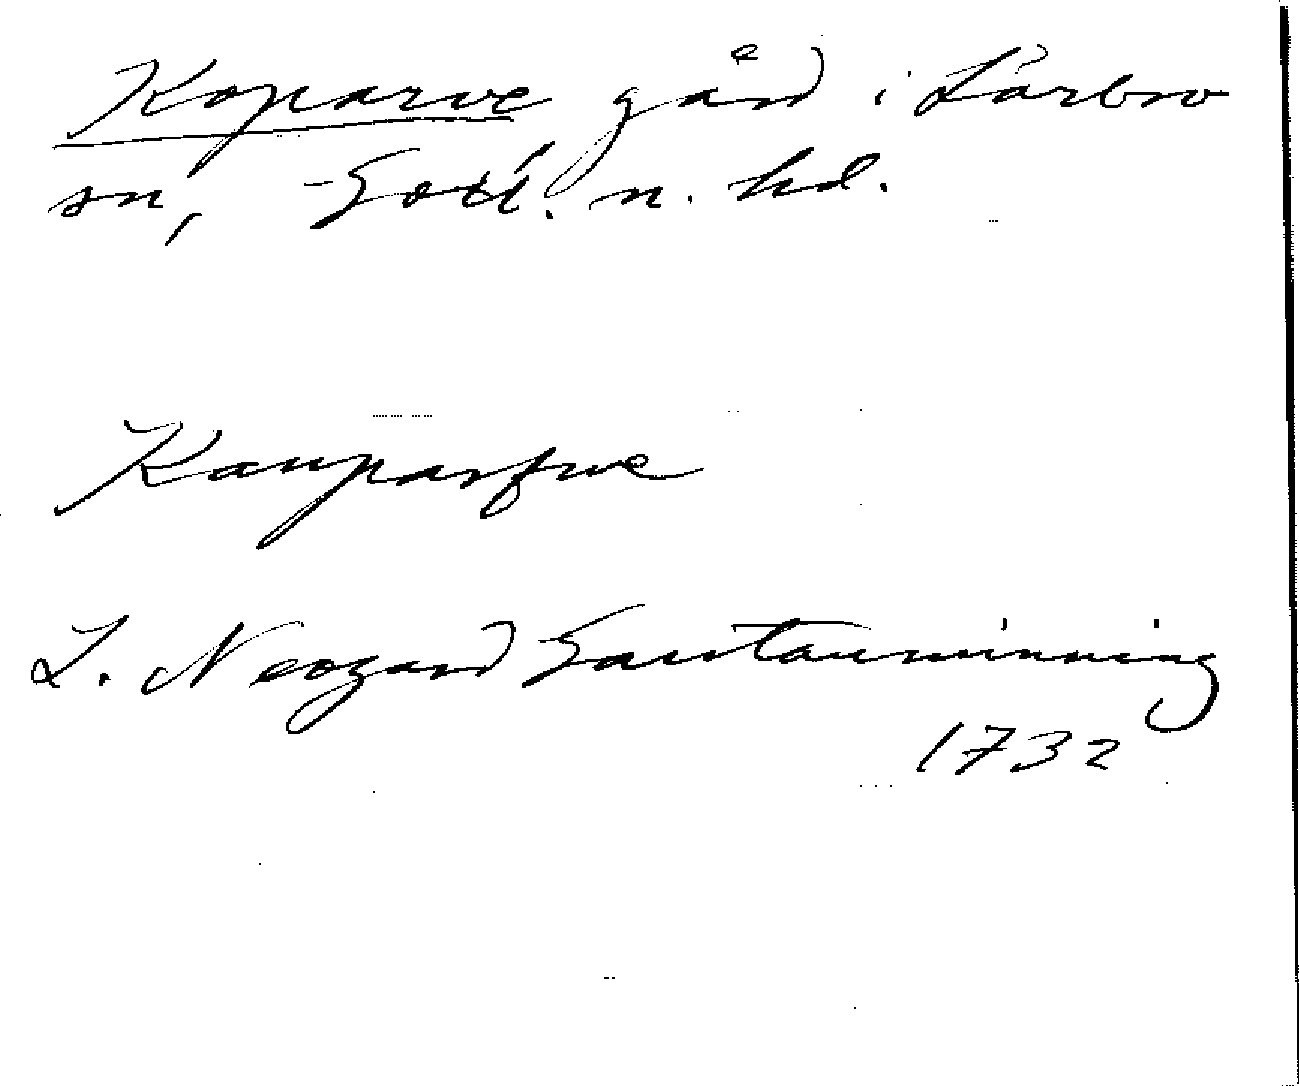 Koparve gård i Lärbro
sn, Gotl. n. hd.
Kauparfve
L. Neogard Gautauminning
1732